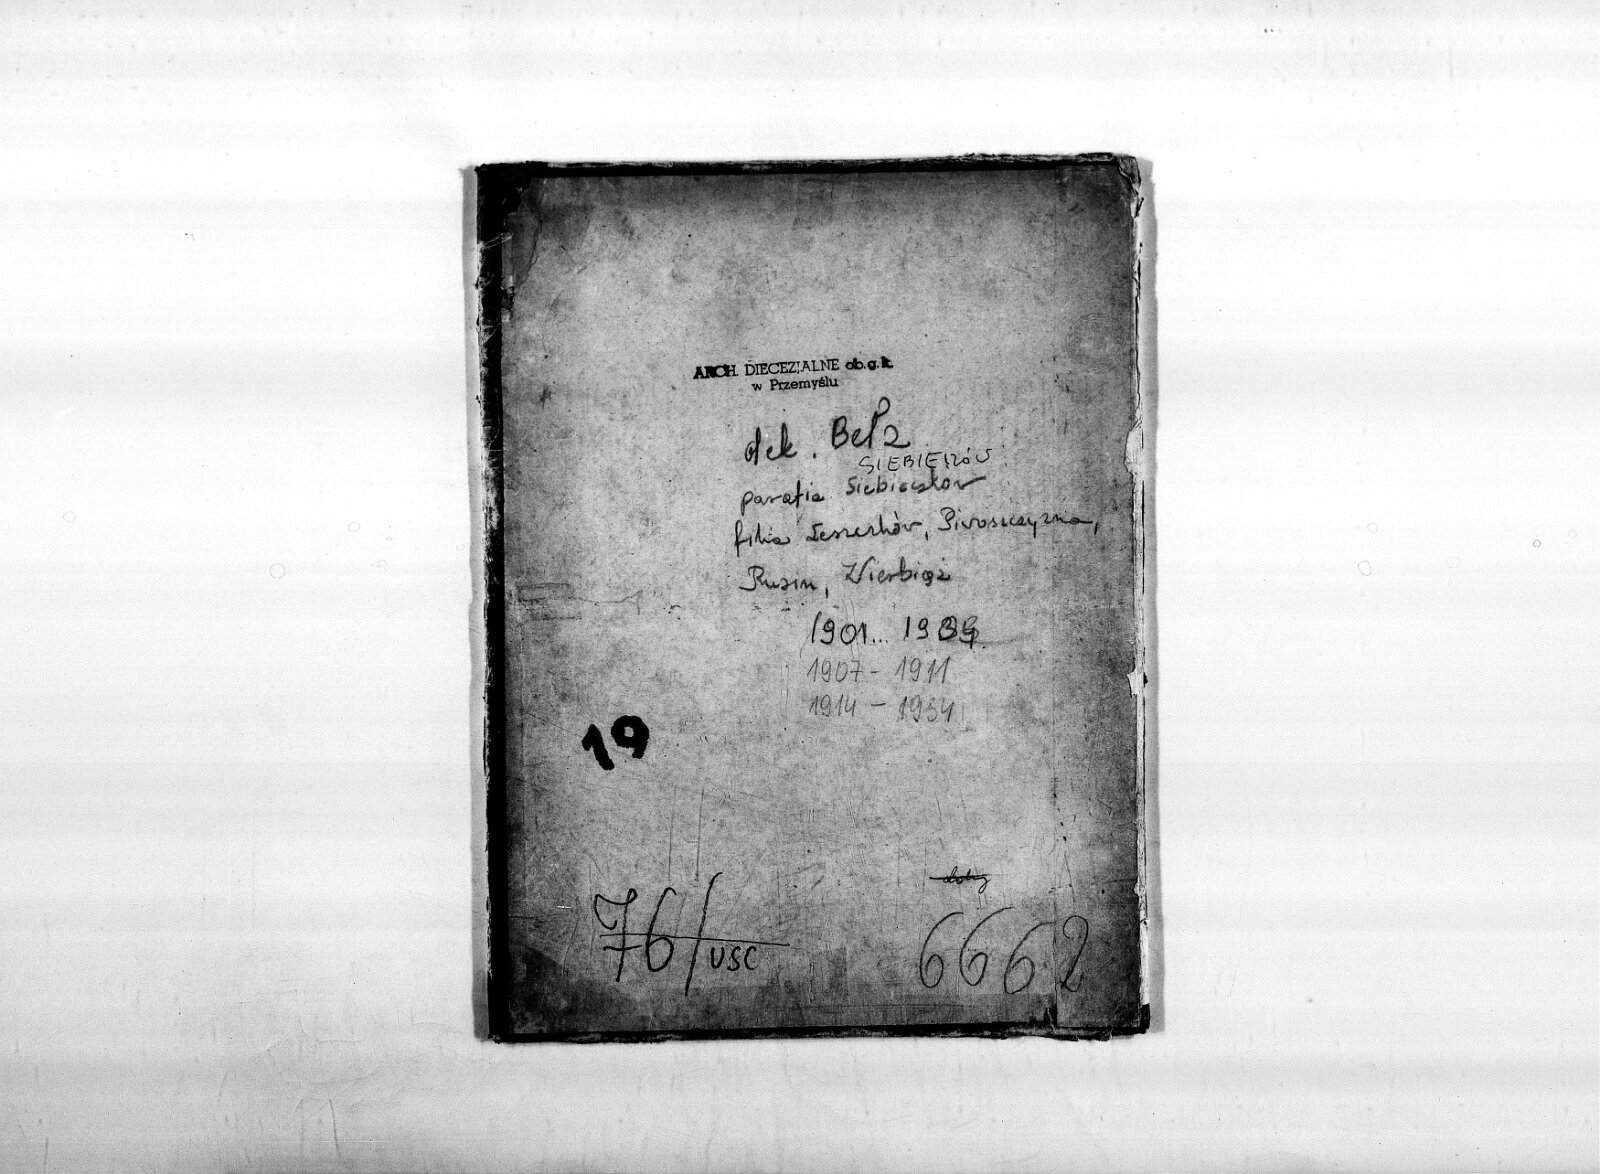 ARCH. DIECEZJALNE ob.g.k.
w Przemyślu
dek. Bełz
SIEBIEŻÓW
parafia
filia Leszczków, Piwoszczyzna,
Rusin, Wierbiąż
1901... 1939
1907 - 1911
1914 - 1934
19
76/USC
6662